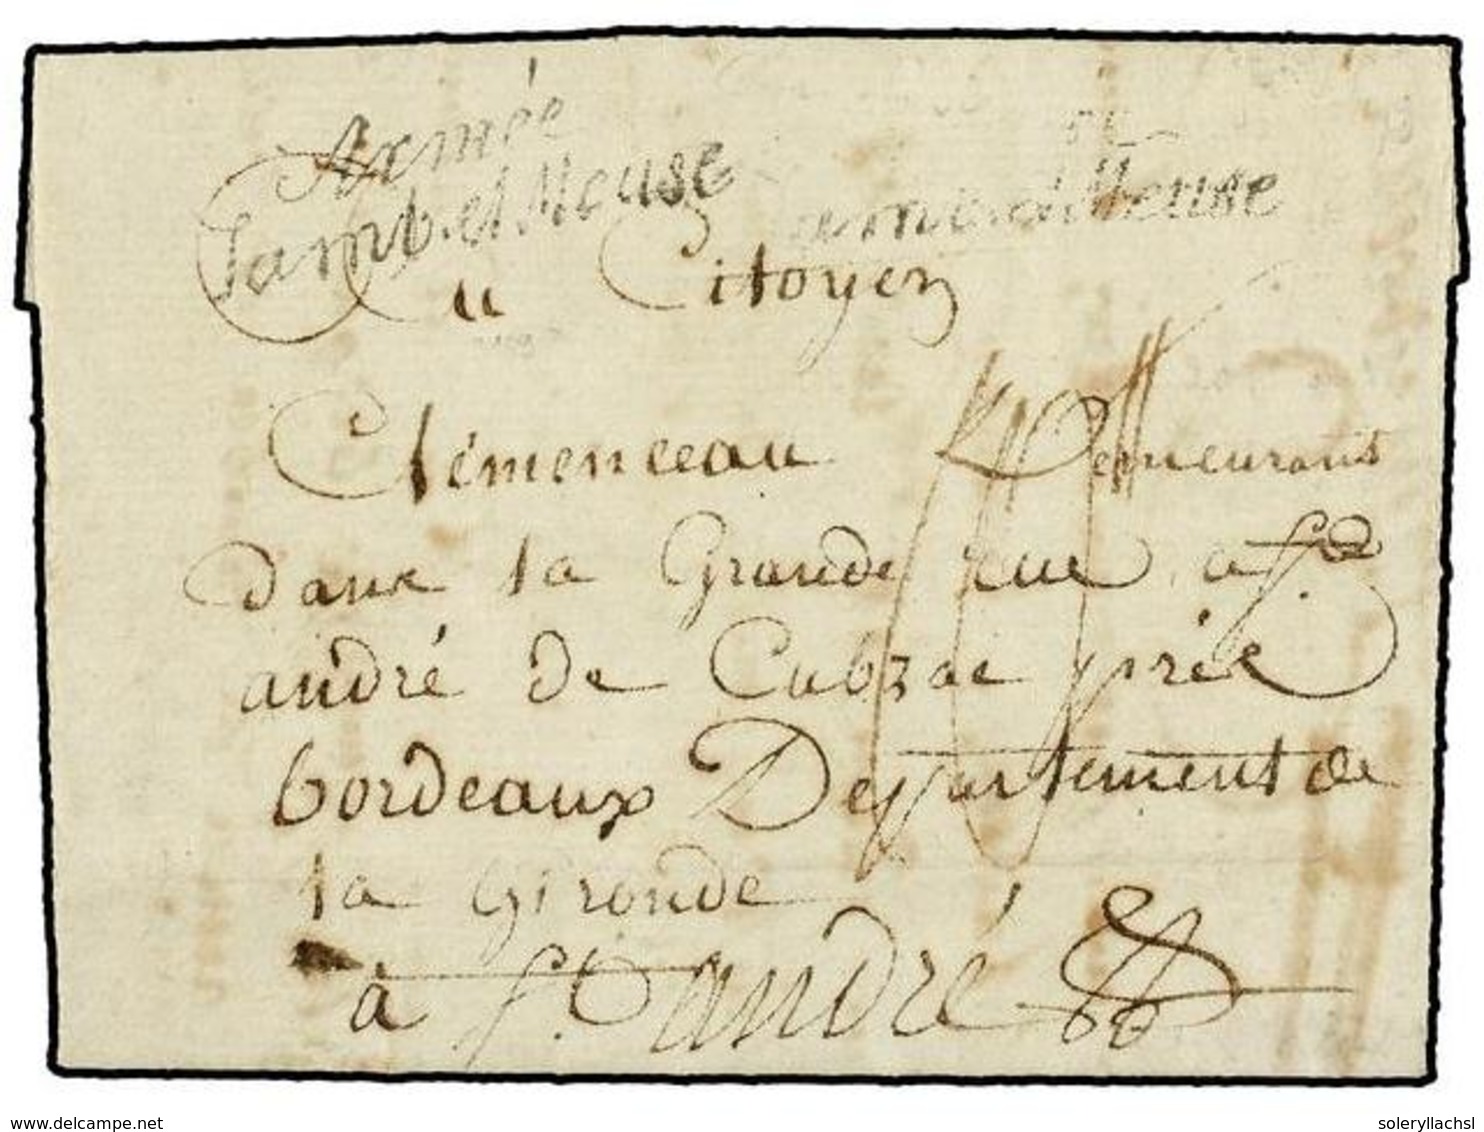 Armée
Samb. et Meuse
et Meuse
au Citoyen
Clémenceau Demeurant
dans la Grande rue a St
andré de Cubzac près
bordeaux Departement de
la Gironde
à St andré
www.delcampe.net
soleryllachsl